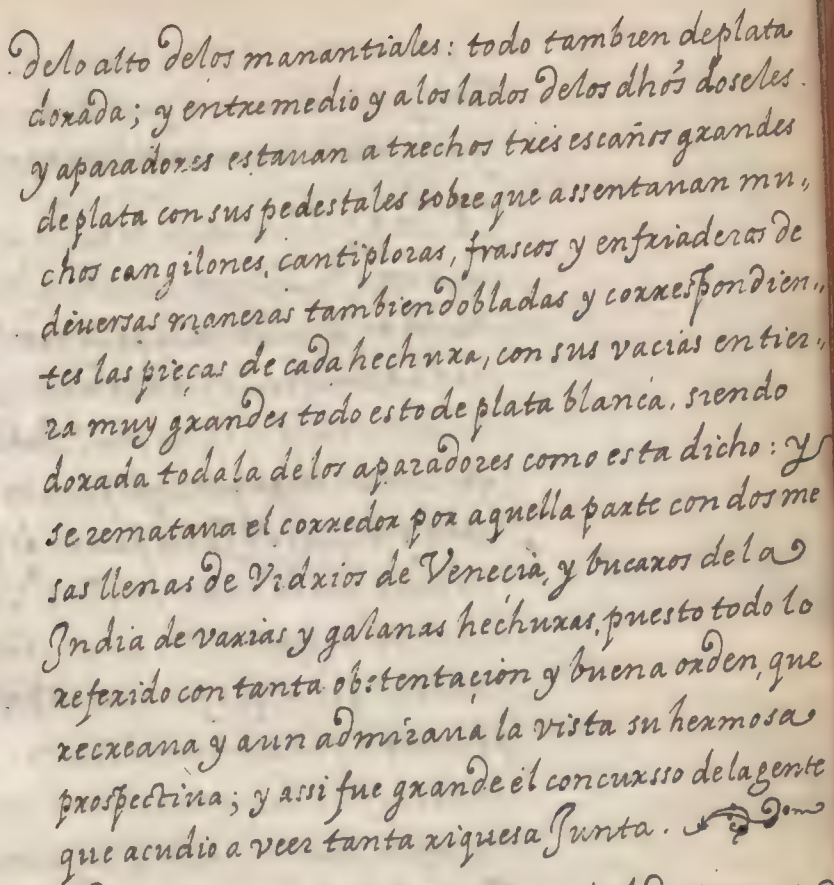 delo alto delos manantiales: todo tambien deplata
dorada; y entremedio y alos lados delos dhos doseles
y aparadores estauan atrechos tres escaños grandes
deplata con sus pedestales sobre que assentauan mu,,
chos cangilones, cantiploras, frascos y enfriaderas de
diuersas maneras tambien dobladas y correspondien,,
tes las pieças de cada hechura, con sus vacias en tier,,
ra muy grandes todo esto de plata blanca, siendo
dorada toda la delos aparadores como esta dicho: y
se remataua el corredor por aquella parte con dos me
sas llenas de Vidrios de Venecia, y bucaros dela
India de varias y galanas hechuras, puesto todo lo
referido con tanta obstentaçion y buena orden, que
recreaua y aun admiraua la vista su hermosa
prospectiua; y assi fue grande el concursso dela gente
que acudio a veer tanta riquesa Junta.